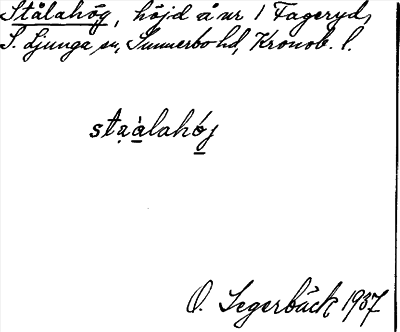 Stålahög, höjd å nr 1 Fageryd,
S. Ljunga sn, Sunnerbo hd, Kronob. l.
stạàlahój
O. Segerbäck 1937